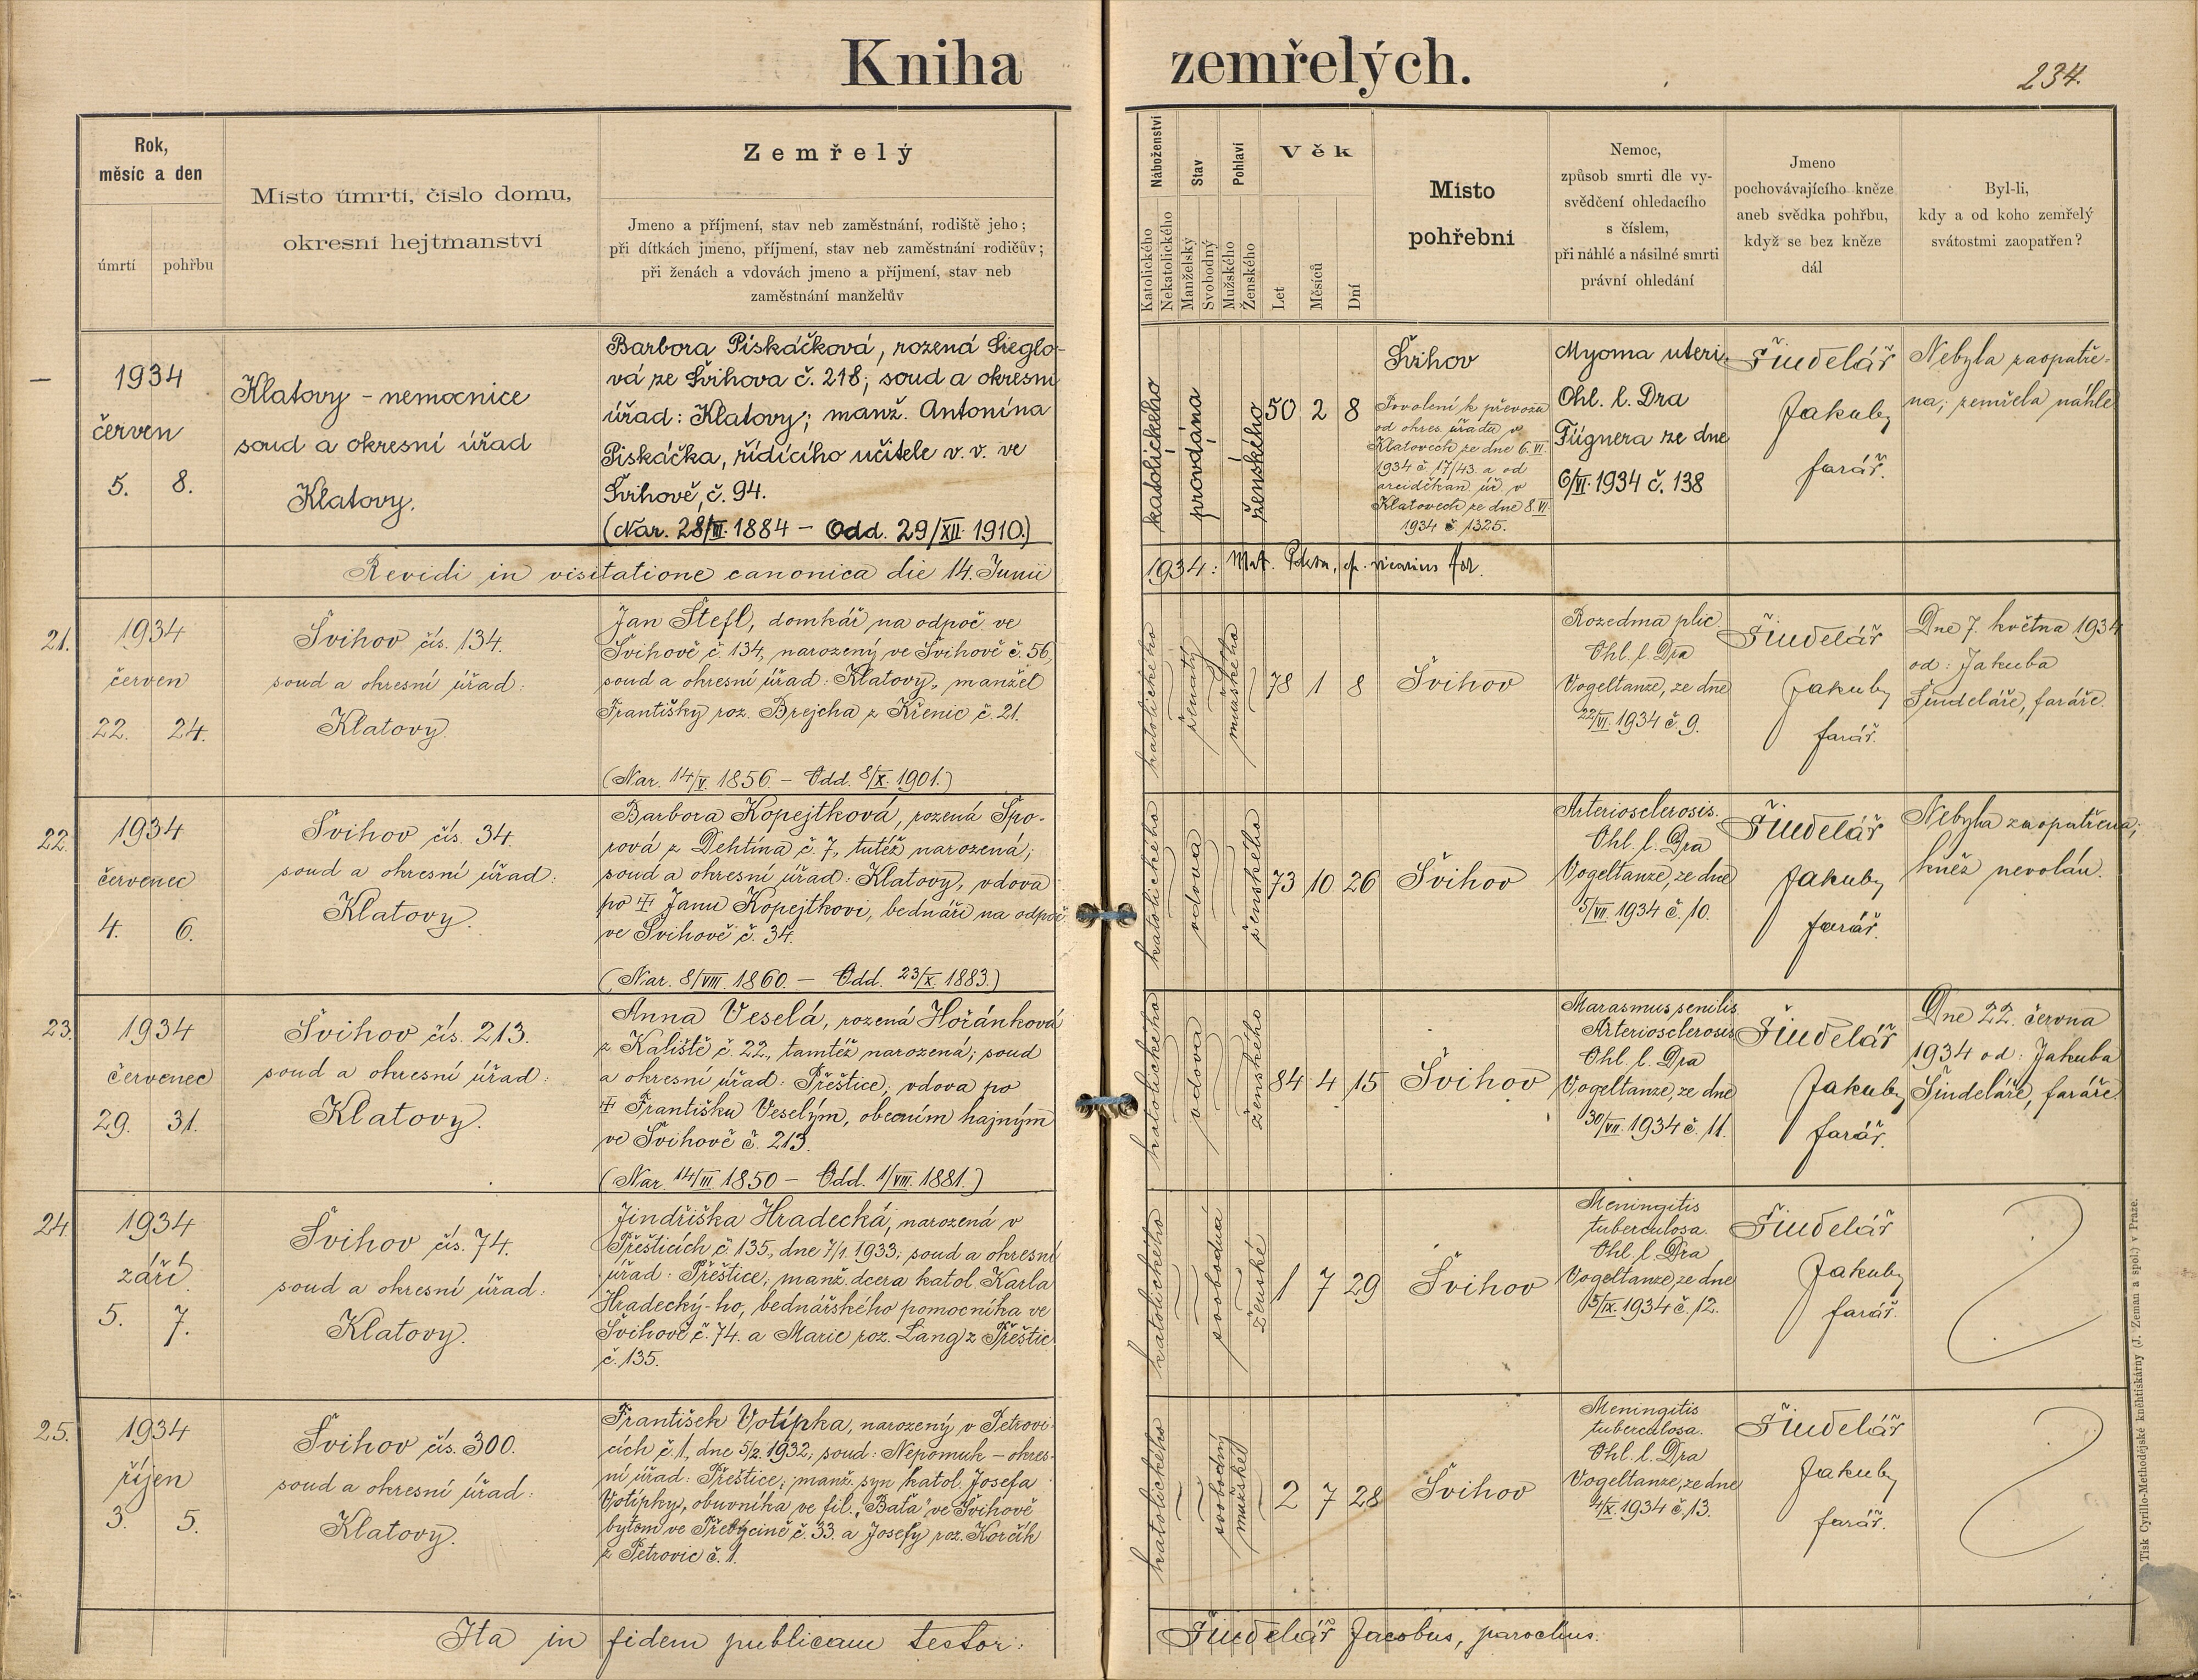 Kniha zemřelých.
234.
Rok,
měsíc a den
úmrtí
pohřbu
Místo úmrtí, číslo domu,
okresní hejtmanství
Zemřelý
Jmeno a příjmení, stav neb zaměstnání, rodiště jeho;
při dítkách jmeno, příjmení, stav neb zaměstnání rodičův;
při ženách a vdovách jmeno a příjmení, stav neb
zaměstnání manželův
Náboženství
Katolického
Nekatolického
Stav
Manželský
Svobodný
Pohlaví
Mužského
Ženského
Věk
Let
Měsíců
Dní
Místo
pohřební
Nemoc,
způsob smrti dle vy-
svědčení ohledacího
s číslem,
při náhlé a násilné smrti
právní ohledání
Jmeno
pochovávajícího kněze
aneb svědka pohřbu,
když se bez kněze
dál
Byl-li,
kdy a od koho zemřelý
svátostmi zaopatřen?
—
1934
červen
5. 8.
Klatovy - nemocnice
soud a okresní úřad
Klatovy.
Barbora Piskáčková, rozená Sieglo-
vá ze Švihova č. 218; soud a okresní
úřad: Klatovy; manž. Antonína
Piskáčka, řídícího učitele v. v. ve
Švihově, č. 94.
(Nar. 28/III. 1884 - Odd. 29/XII. 1910.)
katolického
provdána
ženského
50 2 8
Švihov
Povolení k převozu
od okres. úřadu v
Klatovech ze dne 6. VI.
1934 č. 17/43. a od
arciděkan. úř. v
Klatovech ze dne 8. VI.
1934 č. 1325.
Myoma uteri.
Ohl. l. Dra
Fügnera ze dne
6/VI. 1934 č. 138
Šindelář
Jakub,
farář.
Nebyla zaopatře-
na; zemřela náhle
Revidi in visitatione canonica die 14. Junii
1934: vicarius for.
21.
1934
červen
22. 24.
Švihov čís. 134.
soud a okresní úřad:
Klatovy.
Jan Štefl, domkář na odpoč. ve
Švihově č. 134, narozený ve Švihově č. 56,
soud a okresní úřad: Klatovy, manžel
Františky roz. Brejcha z Křenic č. 21.
(Nar. 14/V. 1856 - Odd. 8/X. 1901.)
katolického
ženatý
mužského
78 1 8
Švihov
Rozedma plic.
Ohl. l. Dra
Vogeltanze, ze dne
22/VI. 1934 č. 9.
Šindelář
Jakub,
farář.
Dne 7. května 1934
od: Jakuba
Šindeláře, faráře.
22.
1934
červenec
4. 6.
Švihov čís. 34.
soud a okresní úřad:
Klatovy.
Barbora Kopejtková, rozená Špo-
rová z Dehtína č. 7, tutéž narozená;
soud a okresní úřad: Klatovy, vdova
po ‡ Janu Kopejtkovi, bednáři na odpoč.
ve Švihově č. 34.
(Nar. 8/VIII. 1860. - Odd. 23/X. 1883.)
katolického
vdova
ženského
73 10 26
Švihov
Arteriosclerosis.
Ohl. l. Dra
Vogeltanze, ze dne
5/VII. 1934 č. 10.
Šindelář
Jakub,
farář.
Nebyla zaopatřena;
kněz nevolán.
23.
1934
červenec
29. 31.
Švihov čís. 213.
soud a okresní úřad:
Klatovy.
Anna Veselá, rozená Hořánková
z Kaliště č. 22, tamtéž narozená; soud
a okresní úřad: Přeštice; vdova po
‡ Františku Veselým, obecním hajným
ve Švihově č. 213.
(Nar. 14/III. 1850 - Odd. 1/VIII. 1881.)
katolického
vdova
ženského
84 4 15
Švihov
Marasmus senilis
Arteriosclerosis
Ohl. l. Dra
Vogeltanze, ze dne
30/VII. 1934 č. 11.
Šindelář
Jakub,
farář.
Dne 22. června
1934 od: Jakuba
Šindeláře, faráře.
24.
1934
září
5. 7.
Švihov čís. 74.
soud a okresní úřad:
Klatovy.
Jindřiška Hradecká, narozená v
Přešticích č. 135, dne 7/1. 1933; soud a okresní
úřad: Přeštice; manž. dcera katol. Karla
Hradecký-ho, bednářského pomocníka ve
Švihově č. 74. a Marie roz. Lang z Přeštic
č. 135.
katolického
svobodná
ženské
1 7 29
Švihov
Meningitis
tuberculosa.
Ohl. l. Dra
Vogeltanze, ze dne
5/IX. 1934 č. 12.
Šindelář
Jakub,
farář.
25.
1934
říjen
3. 5.
Švihov čís. 300.
soud a okresní úřad:
Klatovy.
František Votípka, narozený v Petrovi-
cích č. 1, dne 5/2. 1932; soud: Nepomuk - okres-
ní úřad: Přeštice; manž. syn katol. Josefa
Votípky, obuvníka ve fil. „Baťa" ve Švihově
bytem ve Třebýcině č. 33. a Josefy roz. Korčík
z Petrovic č. 1.
katolického
svobodný
mužské
2 7 28
Švihov
Meningitis
tuberculosa.
Ohl. l. Dra
Vogeltanze, ze dne
4/X. 1934 č. 13.
Šindelář
Jakub,
farář.
Ita in fidem publicam testor: Šindelář Jacobus, parochus.
Tisk Cyrillo-Methodějské knihtiskárny (J. Zeman a spol.) v Praze.